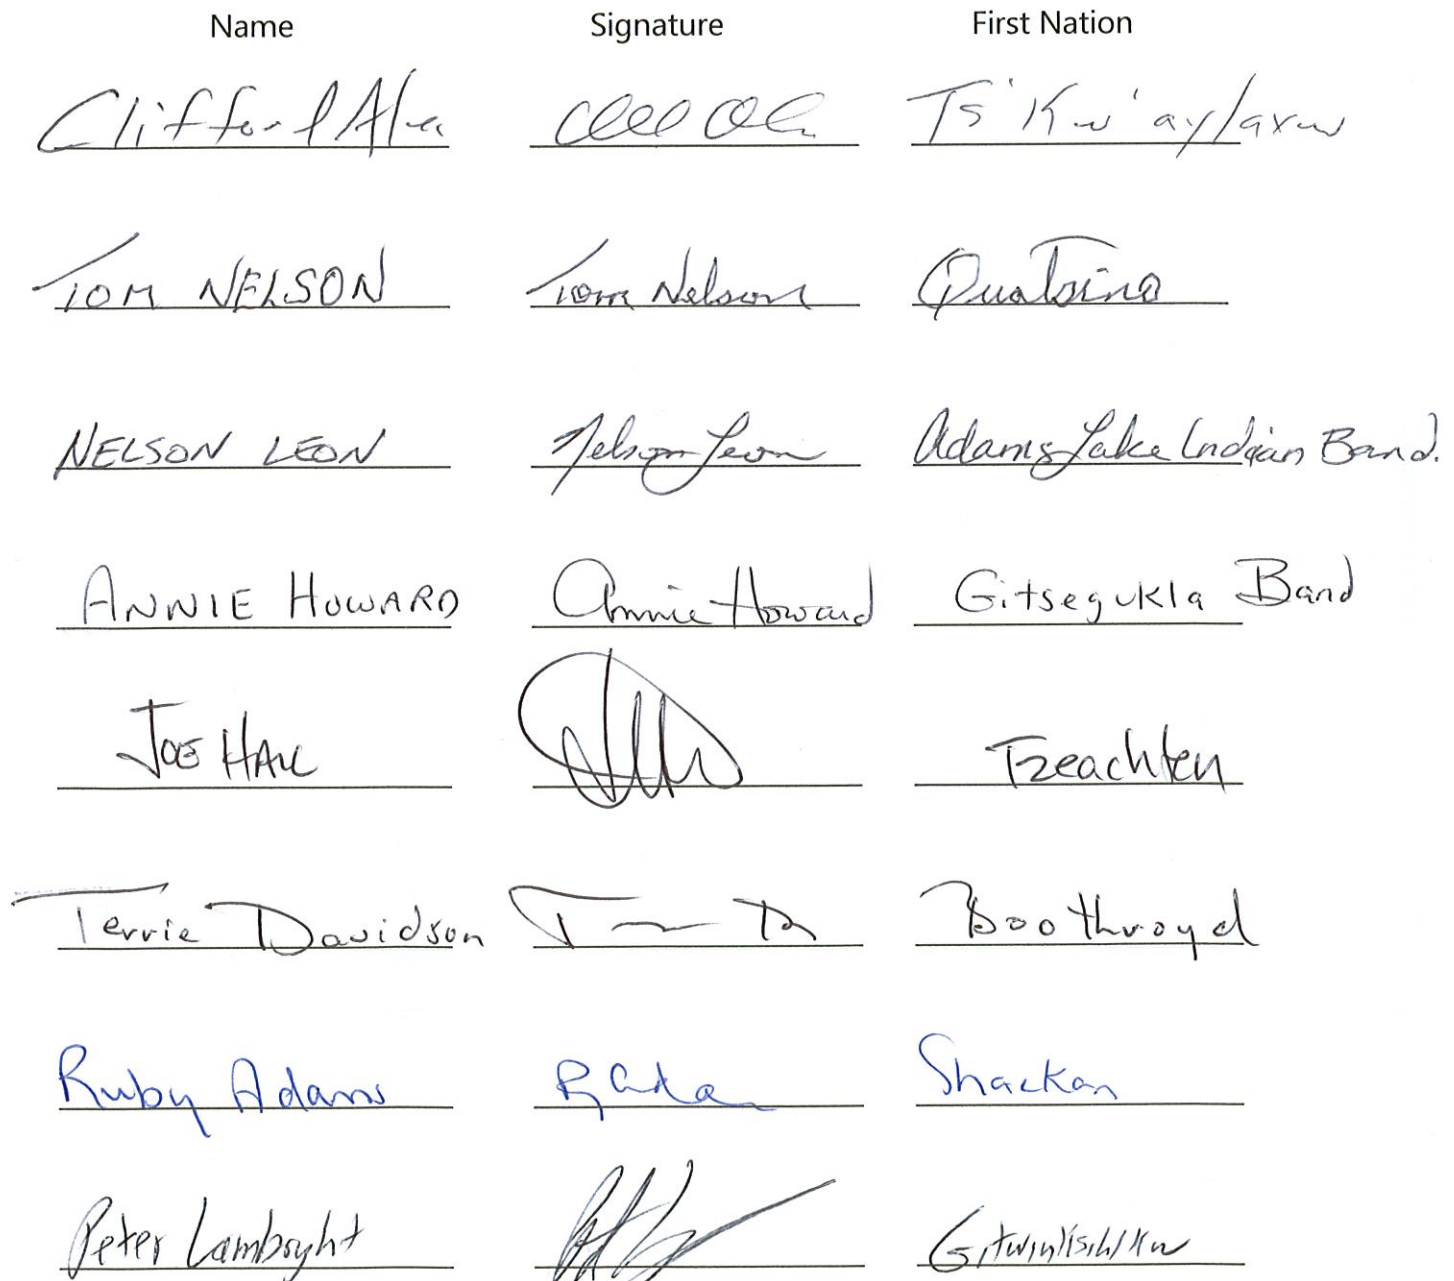 Name Signature First Nation
Clifford Alec Ts'Kw'aylaxw
TOM NELSON Tom Nelson Quatsino
NELSON LEON Nelson Leon Adams Lake Indian Band.
ANNIE HOWARD Annie Howard Gitsegukla Band
JOE HALL Tzeachten
Terrie Davidson Boothroyd
Ruby Adams Shackan
Peter Lambright Gitwinksihlkw